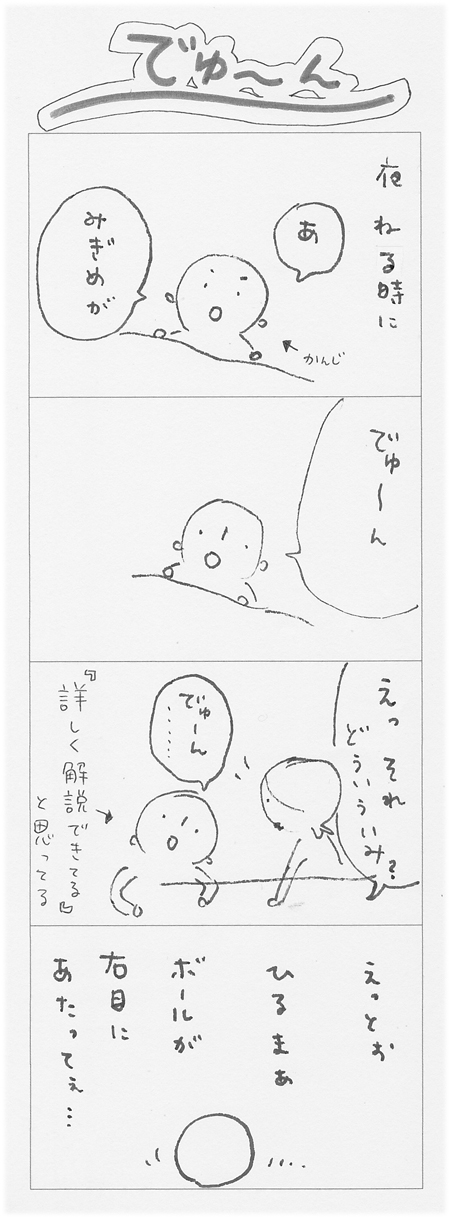 でゅ〜ん
夜ねる時に
あ
みぎめが
かんじ
でゅ〜ん
えっ それ
どういういみ?
でゅーん
………
『詳しく解説できてる』
と思ってる
えっとぉ
ひるまぁ
ボールが
右目に
あたってぇ…